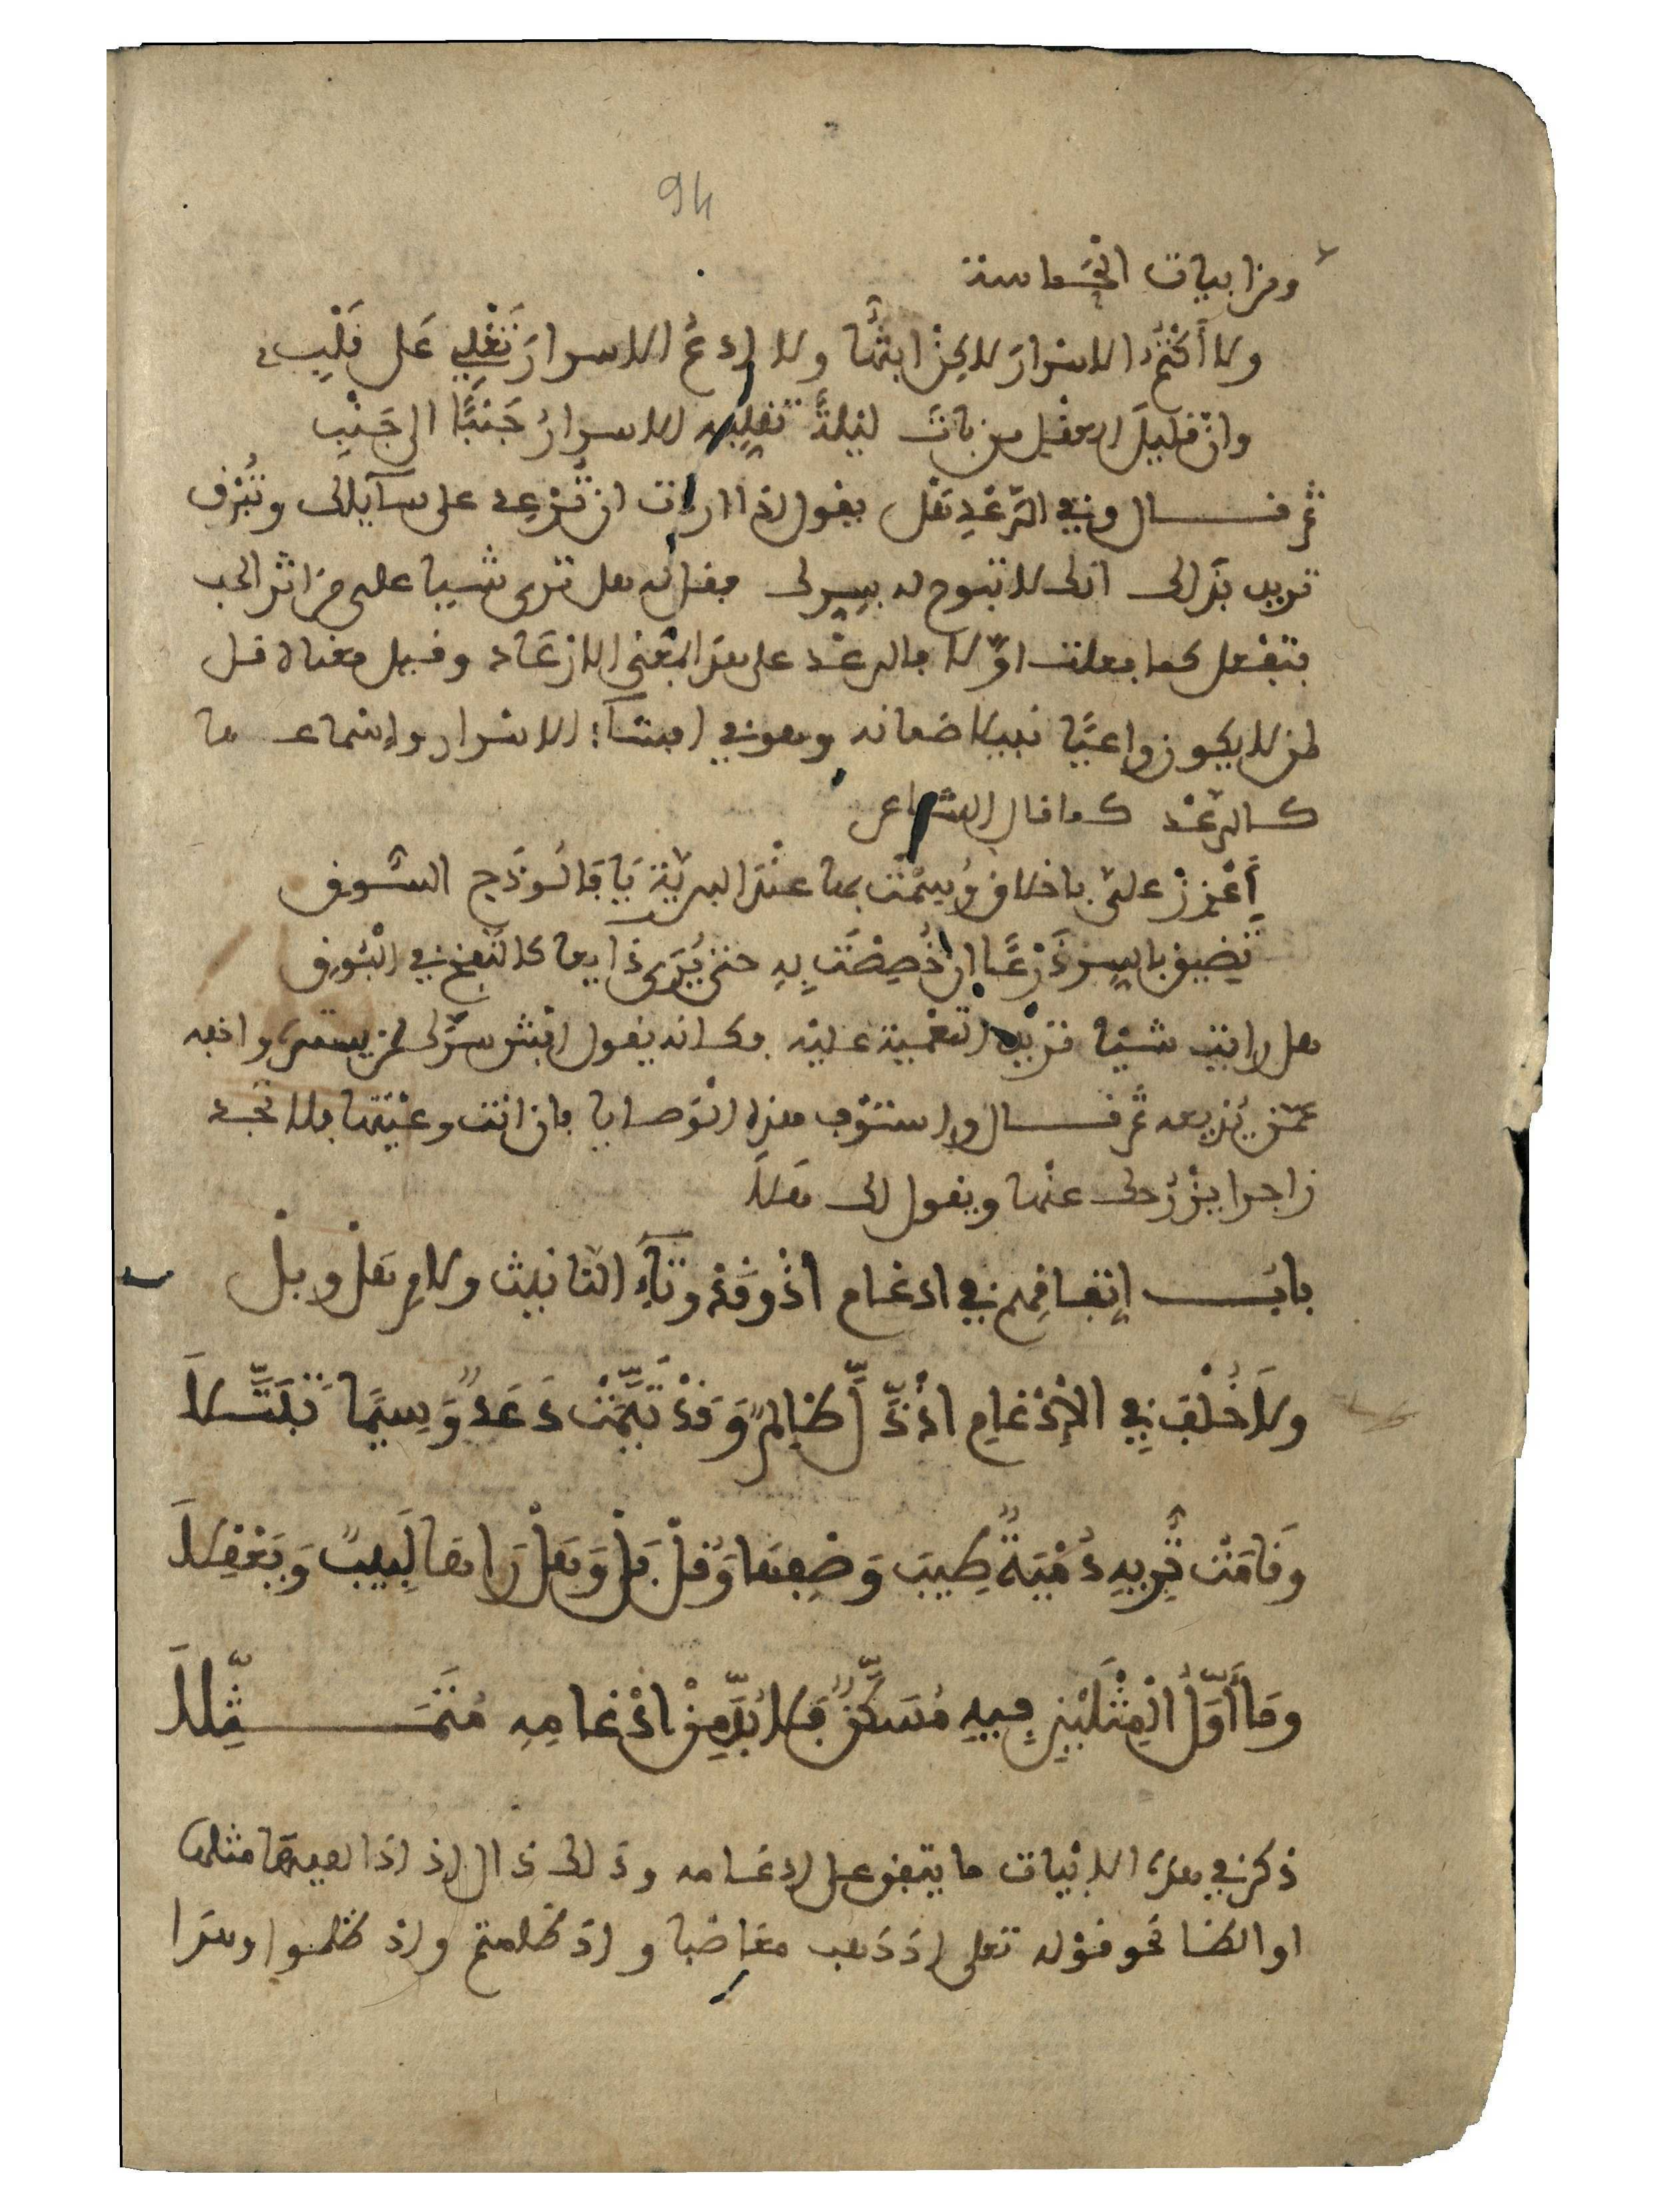 94
ومن ابيات الحماسة
ولا أكتم الاسرار لاكن ابثها ولا ادع الاسرار تغلي على قلبي
وان قليل العقل من بات ليلة تقلبه الاسرار جنبا الى جنب
ثم قال وفي الرعد هل يقول اذا اردت ان ترعد على سآيلك وتبرق
تريد بذالك انك لا تبوح له بسرك فقل له هل ترى شيا على من اثر الحب
فتفعل كما فعلت اوّلا فالرعد على هذا المعنى الارعاد وقيل معناه قل
لمن لا يكون واعيًا نبيلا ضمانه وهو في افشآء الاسرار واسماعها
كالرعد كما قال الشاعر
أعزز علي باخلاق وُسِمْتَ بها عند البرية يا فالوذج السُّوق
تضيق بالسر ذرعًا ان خُصِصْتَ بِهِ حتى يُرى ذايعا كالنفخ في البُوق
هل رايت شيا تريد التعمية عليه وكانه يقول افش سرك لمن يستره واخفه
عمن يذيعه ثم قال واستوف هذه الوصايا فان انت وعيتها فلا تجد
زاجرا يزجرك عنها ويقول لك هَلَا
باب إتفاقِهم في ادغام اذْ وقَدْ وتآءِ التانيث ولامِ هَلْ وبلْ
ولَا خُلْفَ فِي الإدْغامِ اذْ ذَّلَّ ظَالِمٌ وَقَدْ تَّيَّمَتْ دَعْدٌ وَسِيمًا تَبَتَّلَا
وَقَامَتْ تُّرِيهِ دُمْيَةٌ طِيبَ وَصْفِهَا وَقُلْ بَلْ وَهَلْ رَاهَا لَبِيبٌ وَيَعْقِلَا
وَمَا أَوَّلُ الْمِثْلَيْنِ فِيهِ مُسَكَّنٌ فَلَا بُدَّ مِنْ ادْغامِهِ مُتَمَثِّلَا
ذكر في هذه الابيات ما يتفق على ادغامه وذلك ذال اذ اذا لقيها مثلها
او الظا نحو قوله تعلى اذ ذهب مغاضبا و اذ ظلمتم واذ ظلموا وهذا